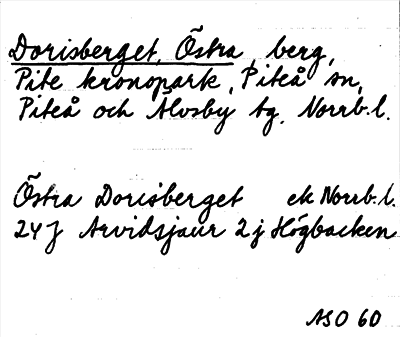 Dorisberget, Östra, berg,
Pite kronopark, Piteå sn,
Piteå och Älvsby tg, Norrb.l.
Östra Dorisberget ek Norrb.l.
24J Arvidsjaur 2j Högbacken
ASO 60